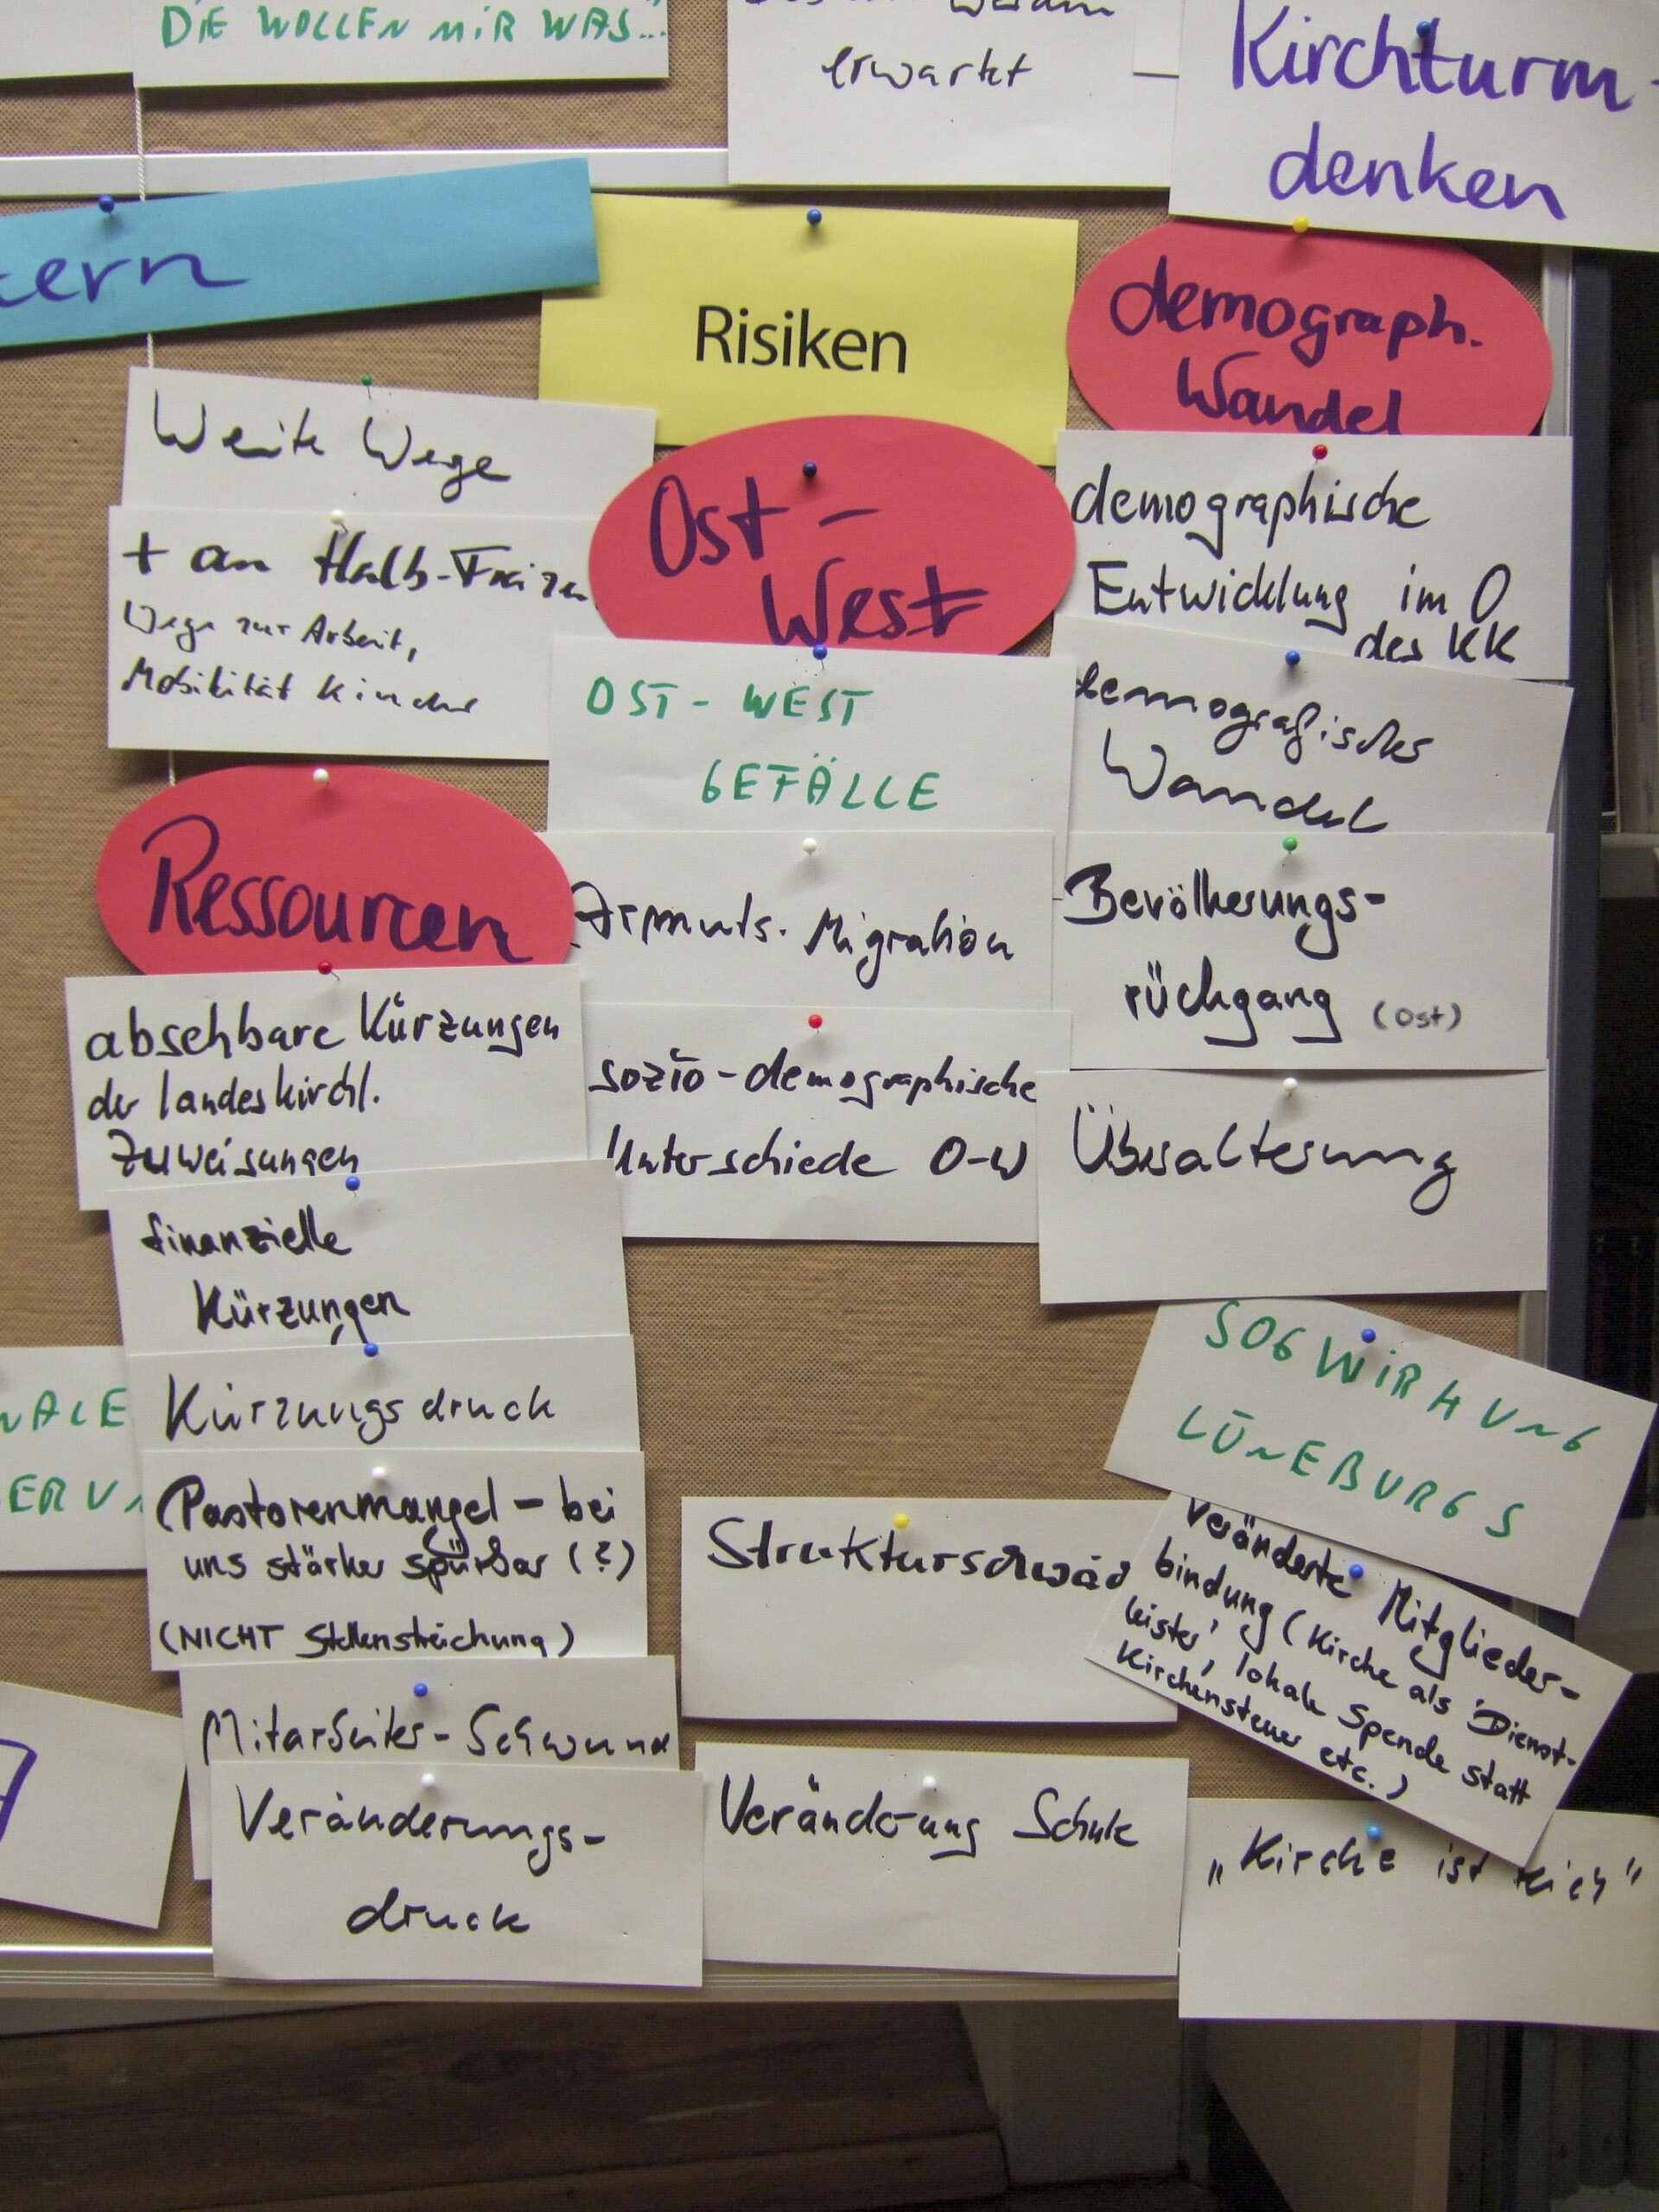 DIE WOLLEN MIR WAS...
erwartet
Kirchturm-
denken
Risiken
demograph.
Wandel
Weite Wege
+ an Halb-
Wege zur Arbeit,
Mobilität Kinder
Ost-
West
OST-WEST
GEFÄLLE
Armuts-Migration
sozio-demographische
Unterschiede O-W
demographische
Entwicklung im O
des KK
demografischer
Wandel
Bevölkerungs-
rückgang (Ost)
Überalterung
Ressourcen
absehbare Kürzungen
der landeskirchl.
Zuweisungen
finanzielle
Kürzungen
Kürzungsdruck
Pastorenmangel - bei
uns stärker spürbar (?)
(NICHT Stellenstreichung)
Mitarbeiter-Schwund
Veränderungs-
druck
Strukturschwäc
Veränderung Schule
SOGWIRKUNG
LÜNEBURGS
Veränderte Mitglieder-
bindung (Kirche als 'Dienst-
leister', lokale Spende statt
Kirchensteuer etc.)
„Kirche ist reich"